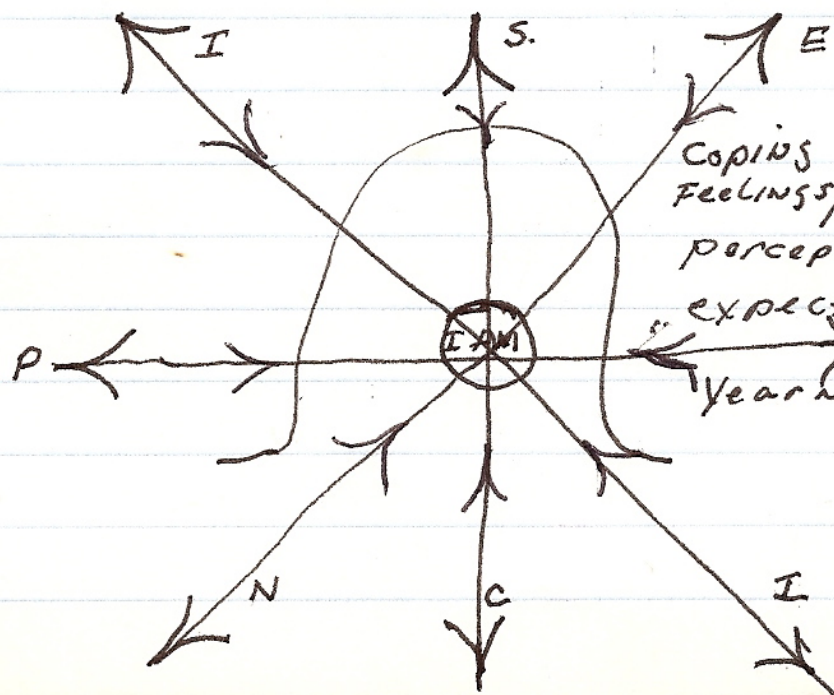 I
S.
E
Coping
Feelings,
percep
expec
I AM
P
Yearn
N
C
I